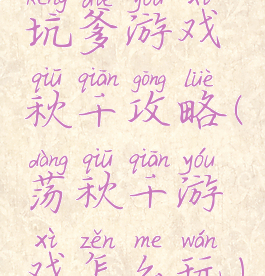 kēng diē yóu xì
坑爹游戏
qiū qiān gōng lüè
秋千攻略(
dàng qiū qiān yóu
荡秋千游
xì zěn me wán
戏怎么玩)